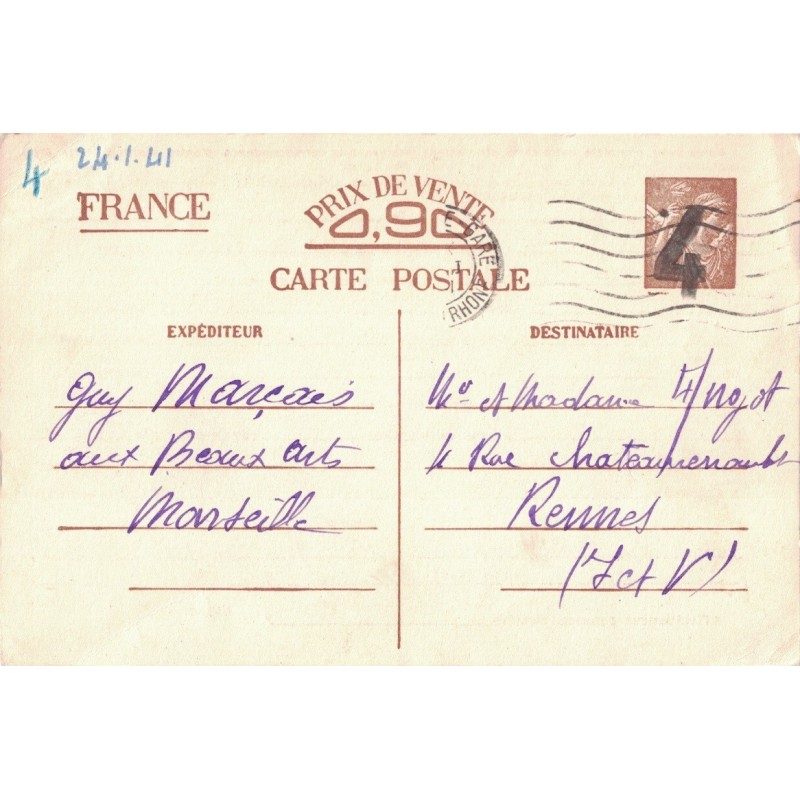 4 24.1.41
FRANCE
PRIX DE VENTE
0,90
CARTE POSTALE
E GARE
RHON
4
EXPÉDITEUR
DESTINATAIRE
Guy Marçais
aux Beaux Arts
Marseille
Mr et Madame
4 Rue Chateaurenault
Rennes
(I et V)